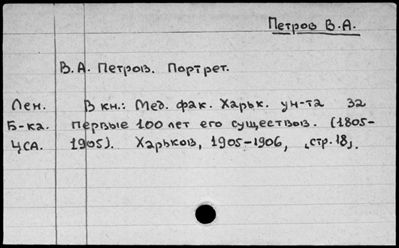 Петров В.А.
В.А. Петров. Портрет.
Лен. В кн.: Мед. фак. Харьк. ун-та за
Б-ка. первые 100 лет его существов. (1805-
ЦСА. 1905). Харьков, 1905-1906, стр. 18.